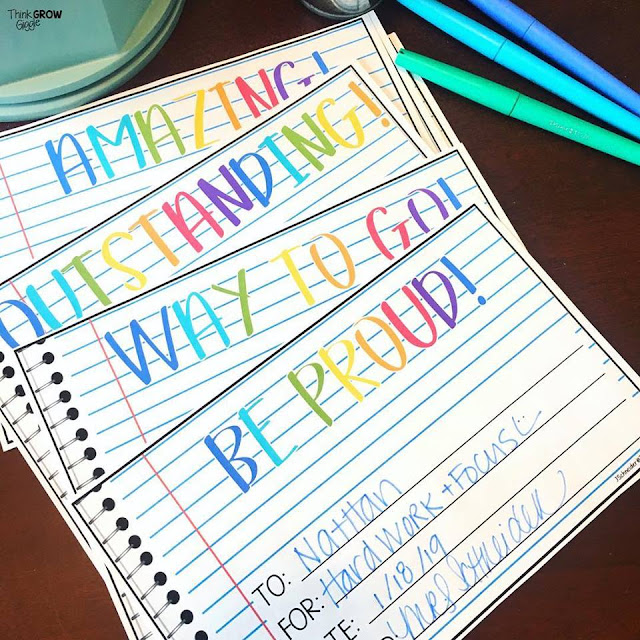 Think GROW
Giggle
AMAZING!
OUTSTANDING!
WAY TO GO!
BE PROUD!
TO: Nathan
FOR: Hard Work + Focus
TE: 1/18/19
Mrs. Schneider